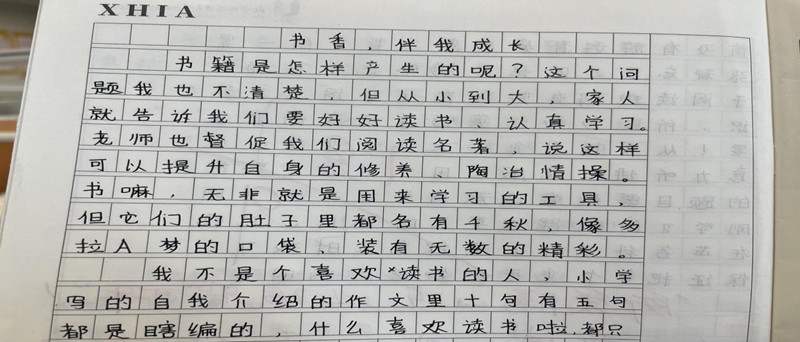 XHIA
书香，伴我成长
书籍是怎样产生的呢？这个问
题我也不清楚，但从小到大，家人
就告诉我们要好好读书、认真学习。
老师也督促我们阅读名著，说这样
可以提升自身的修养、陶冶情操。
书嘛，无非就是用来学习的工具，
但它们的肚子里都各有千秋，像多
拉A梦的口袋、装有无数的精彩。
我不是个喜欢读书的人，小学
写的自我介绍的作文里十句有五句
都是瞎编的，什么喜欢读书啦，都只